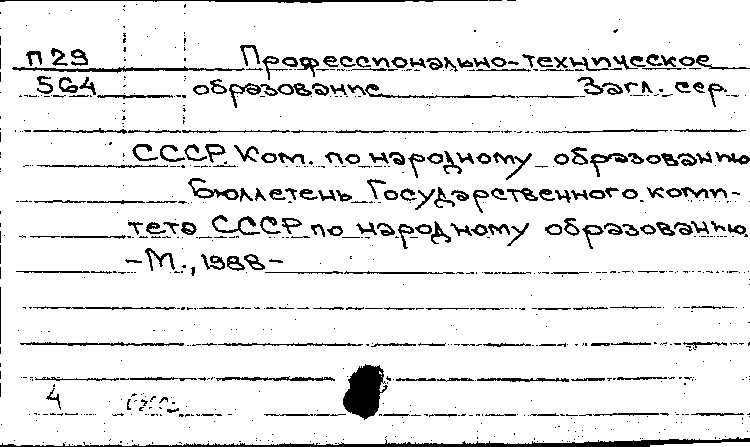 П29 Профессионально-техническое
564 образование Загл. сер.
СССР. Ком. по народному образованию
Бюллетень Государственного коми-
тета СССР по народному образованию.
-М., 1988-
4